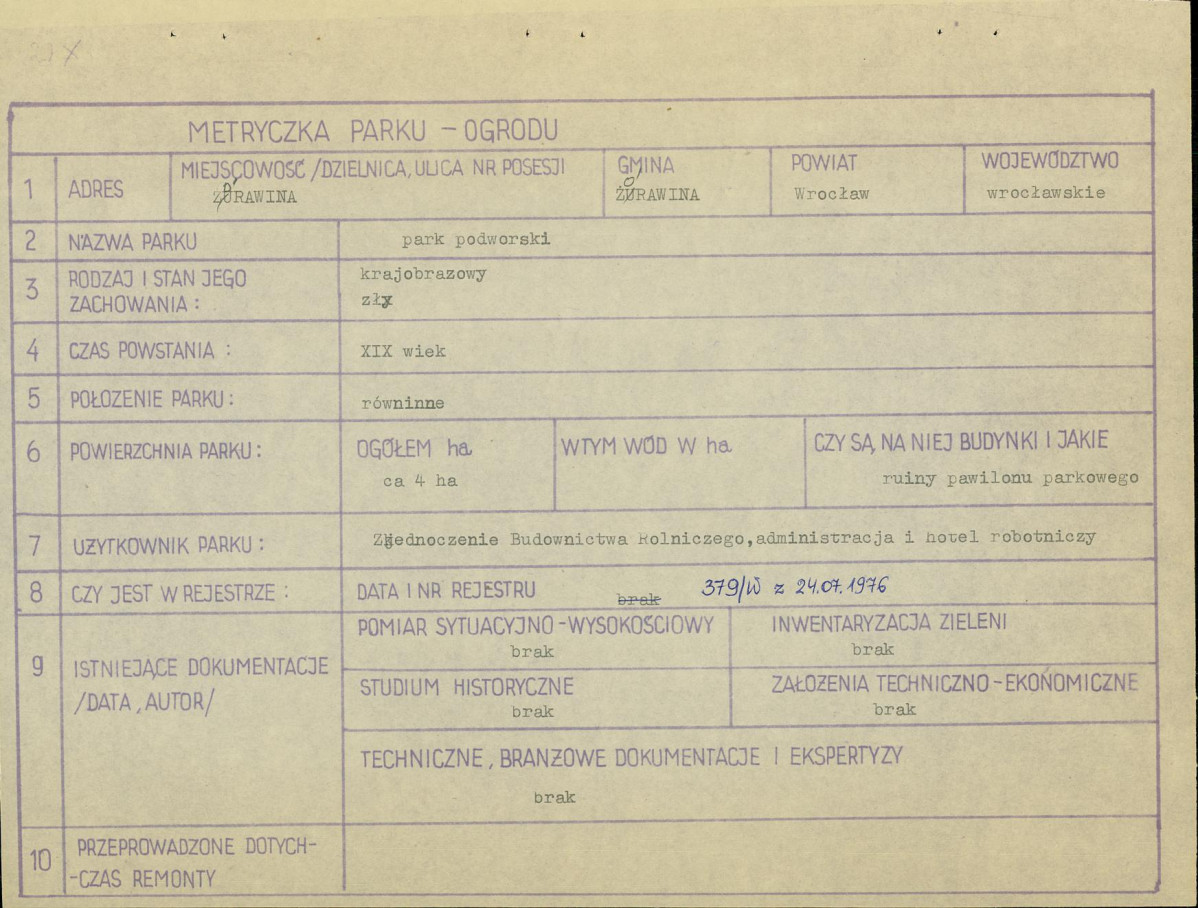 METRYCZKA PARKU – OGRODU
1 ADRES
MIEJSCOWOŚĆ /DZIELNICA, ULICA NR POSESJI
ŻÓRAWINA
GMINA
ŻÓRAWINA
POWIAT
Wrocław
WOJEWÓDZTWO
wrocławskie
2 NAZWA PARKU
park podworski
3 RODZAJ I STAN JEGO
ZACHOWANIA :
krajobrazowy
zły
4 CZAS POWSTANIA :
XIX wiek
5 POŁOZENIE PARKU :
równinne
6 POWIERZCHNIA PARKU :
OGÓŁEM ha
ca 4 ha
W TYM WÓD W ha
CZY SĄ NA NIEJ BUDYNKI I JAKIE
ruiny pawilonu parkowego
7 UŻYTKOWNIK PARKU :
Zjednoczenie Budownictwa Rolniczego,administracja i hotel robotniczy
8 CZY JEST W REJESTRZE :
DATA I NR REJESTRU
brak 379/W z 24.07.1976
9 ISTNIEJĄCE DOKUMENTACJE
/DATA, AUTOR/
POMIAR SYTUACYJNO-WYSOKOŚCIOWY
brak
INWENTARYZACJA ZIELENI
brak
STUDIUM HISTORYCZNE
brak
ZAŁOŻENIA TECHNICZNO-EKONOMICZNE
brak
TECHNICZNE, BRANŻOWE DOKUMENTACJE I EKSPERTYZY
brak
10 PRZEPROWADZONE DOTYCH-
-CZAS REMONTY